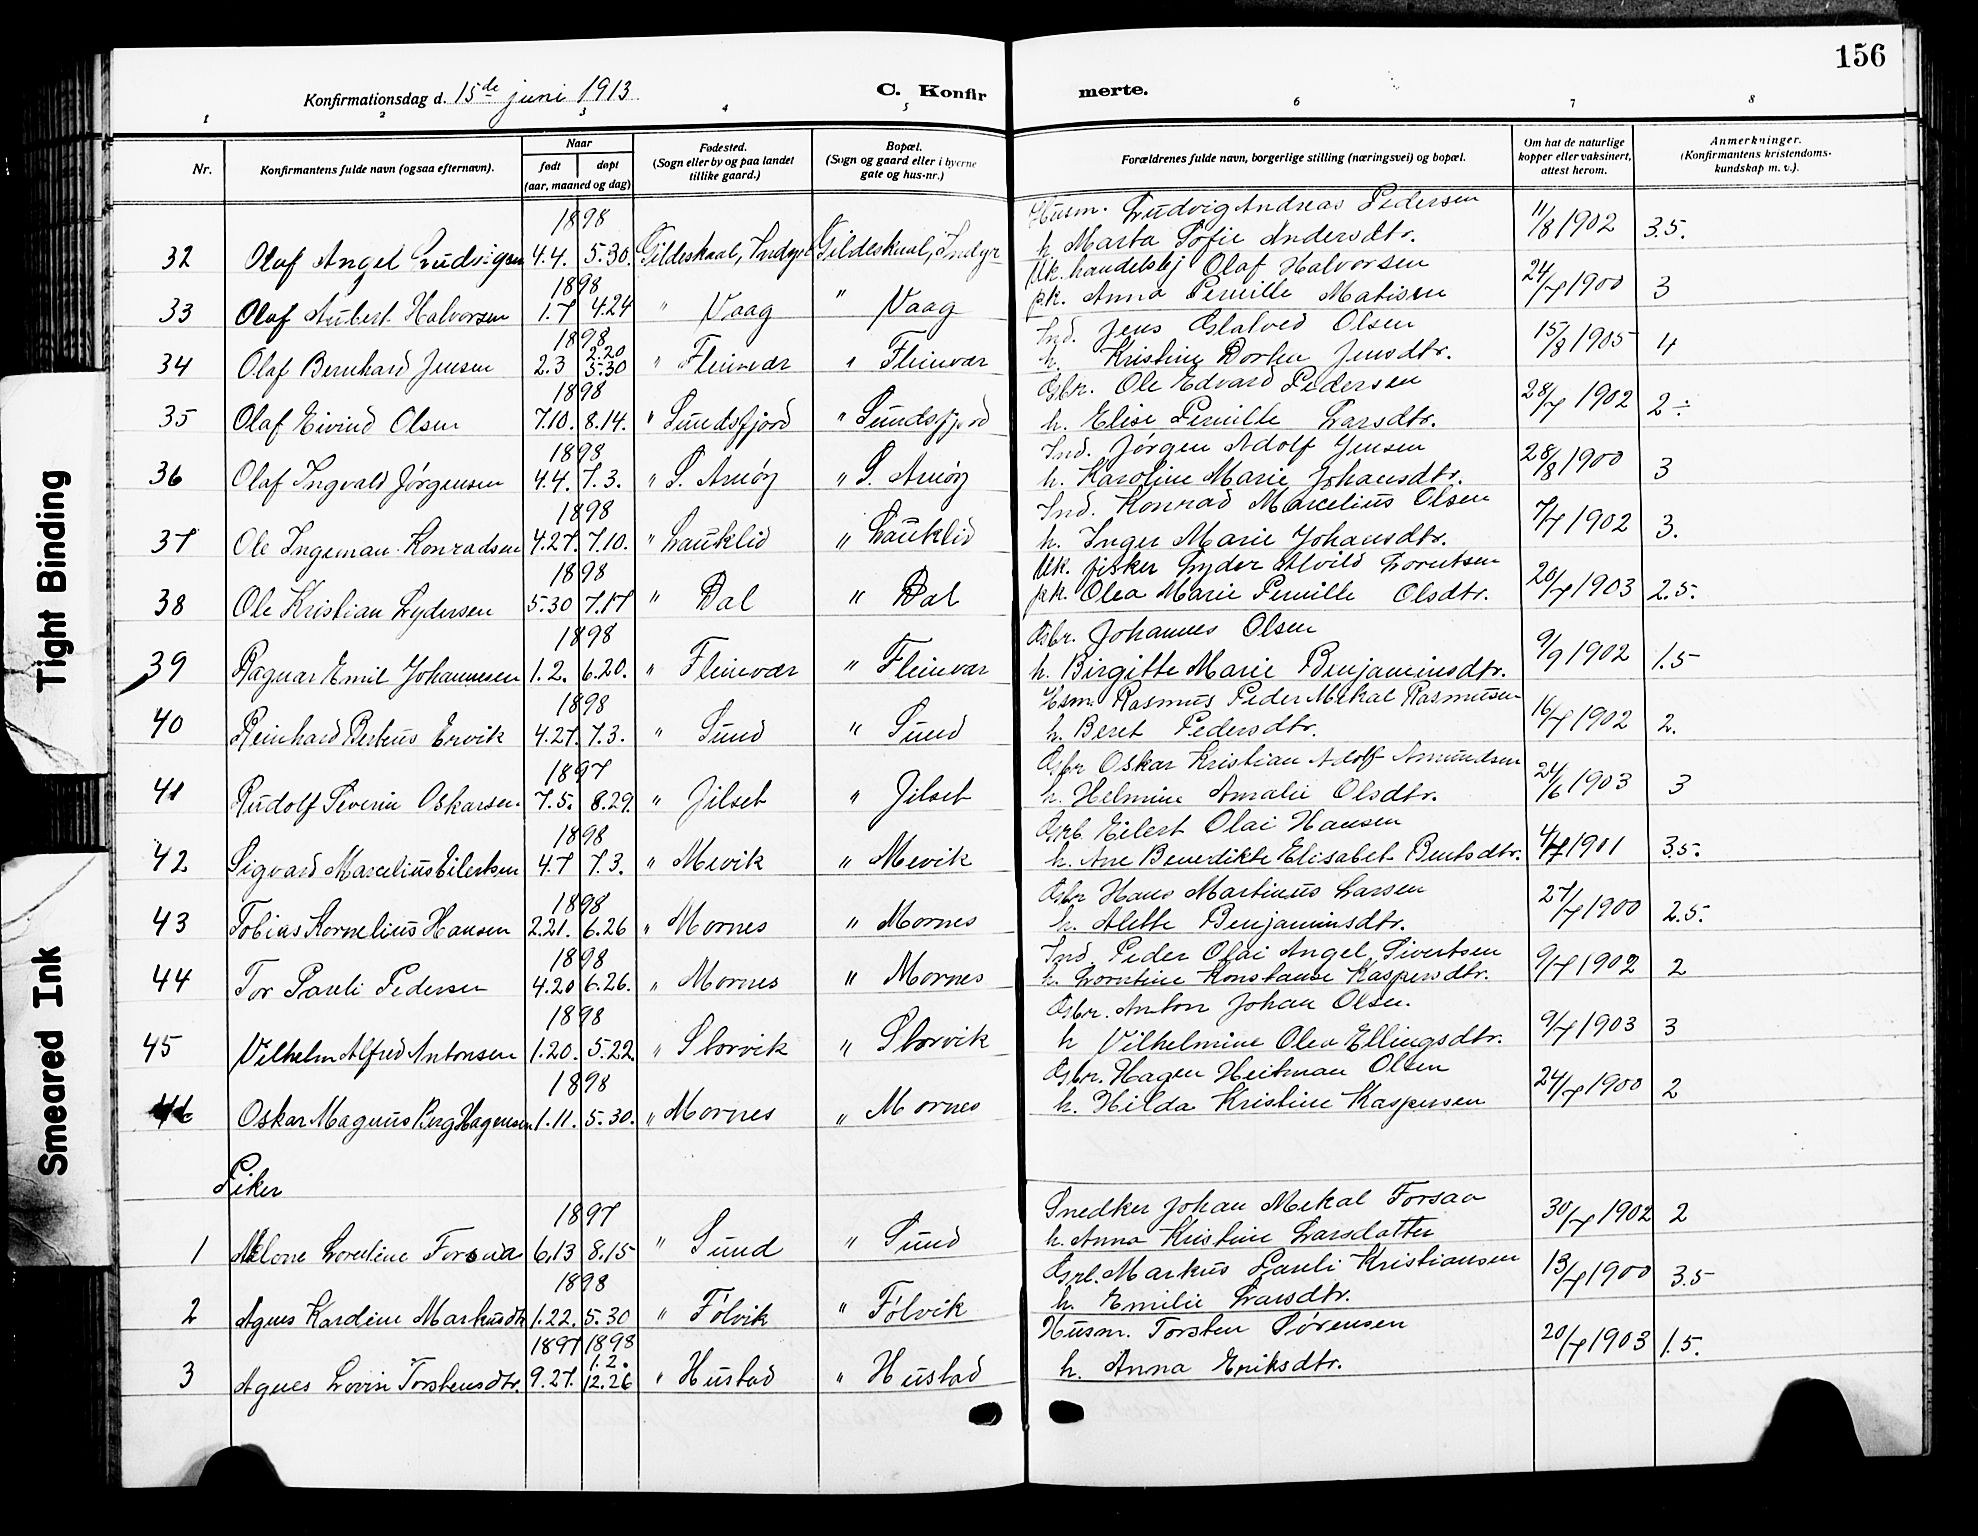 156
Konfirmationsdag d. 15de juni 1913.
C. Konfirmerte.
1 2 3 4 5 6 7 8
Nr.
Konfirmantens fulde navn (ogsaa efternavn).
Naar
født døpt
(aar, maaned og dag)
Fødested.
(Sogn eller by og paa landet
tillike gaard.)
Bopæl.
(Sogn og gaard eller i byerne
gate og hus-nr.)
Forældrenes fulde navn, borgerlige stilling (næringsvei) og bopæl.
Om hat de naturlige
kopper eller vaksinert,
attest herom.
Anmerkninger.
(Konfirmantens kristendoms-
kundskap m. v.).
1898 Husm. Ludvig Andreas Pedersen
32 Olaf Angel Ludvigsen 4.4. 5.30. Gildeskaal, Indyr Gildeskaal, Indyr h. Marta Sofie Andersdtr. 11/8 1902 3.5.
1898 Uk. handelsbj Olaf Halvorsen
33 Olaf Aubert Halvorsen 1.7 4.24 " Vaag " Vaag pk. Anna Pernille Matisen 24/7 1900 3
1898 Ind. Jens Olsen
2.20
34 Olaf Bernhard Jensen 2.3 5.30 " Fleinvær " Fleinvær h. Kristine Dorthea Jensdtr. 15/8 1905 4
1898 Gbr. Ole Edvard Pedersen
35 Olaf Eivind Olsen 7.10. 8.14. " Sundsfjord " Sundsfjord h. Elise Pernille Larsdtr. 28/7 1902 2 ÷
1898 Ind. Jørgen Adolf Jensen
36 Olaf Ingvald Jørgensen 4.4. 7.3. " S. Arnöy " S. Arnöy h. Karoline Marie Johansdtr. 28/8 1900 3
1898 Ind. Konrad Marcelius Olsen
37 Ole Ingeman Konradsen 4.27. 7.10. " Lauklid " Lauklid h. Inger Marie Johansdtr. 7/7 1902 3.
1898 Uk. fisker Lyder Alvild Lorntsen
38 Ole Kristian Lydersen 5.30 7.17 " Dal " Dal pk. Olea Marie Pernille Olsdtr. 20/7 1903 2.5.
1898 Gbr. Johannes Olsen
39 Ragnar Emil Johannesen 1.2. 6.20. " Fleinvær " Fleinvær h. Birgitte Marie Benjaminsdtr. 9/9 1902 1.5
1898 Hsm. Rasmus Peder Mekal Rasmussen
40 Reinhard Berteus Ervik 4.27. 7.3. " Sund " Sund h. Beret Pedersdtr. 16/7 1902 2.
1897 Gbr Oskar Kristian Adolf Amundsen
41 Rudolf Severin Oskarsen 7.5. 8.29. " Jilset " Jilset h. Helmine Amalie Olsdtr. 24/6 1903 3
1898 Gbr. Eilert Olai Hansen
42 Sigvard Marcelius Eilertsen 4.7 7.3. " Mevik " Mevik h. Ane Benedikte Elisabet Bentsdtr. 4/7 1901 3.5.
1898 Gbr Hans Martinus Larsen
43 Tobias Kornelius Hansen 2.21. 6.26 " Mornes " Mornes h. Alette Benjaminsdtr. 27/7 1900 2.5.
1898 Ind. Peder Olai Angel Sivertsen
44 Tor Pauli Pedersen 4.20 6.26. " Mornes " Mornes h. Lorntine Konstanse Kaspersdtr. 9/7 1902 2
1898 Gbr. Anton Johan Olsen.
45 Vilhelm Alfred Antonsen 1.20. 5.22. " Storvik " Storvik h Vilhelmine Olea Ellingsdtr. 9/7 1903 3
1898 Gbr. Hagen Heitman Olsen
46 Oskar Magnus Berg Hagensen 1.11. 5.30. " Mornes " Mornes h. Hilda Kristine Kaspersen 24/7 1900 2
Piker
1897 Snedker Johan Mekal Forsaa
1 Lorentine Forsaa 6.13 8.15 " Sund " Sund h. Anna Kristine Larsdatter 30/7 1902 2
1898 Gbr. Markus Pauli Kristiansen
2 Agnes Kardine Markusdtr 1.22. 5.30 " Følvik " Følvik h. Emilie Larsdtr. 13/7 1900 3.5
1897 1898 Husm. Torsten Sørensen
1.2.
3 Agnes Lovise Torstensdtr. 9.27. 12.26 " Hustad " Hustad h. Anna Eriksdtr. 20/7 1903 1.5.
Tight Binding
Smeared Ink